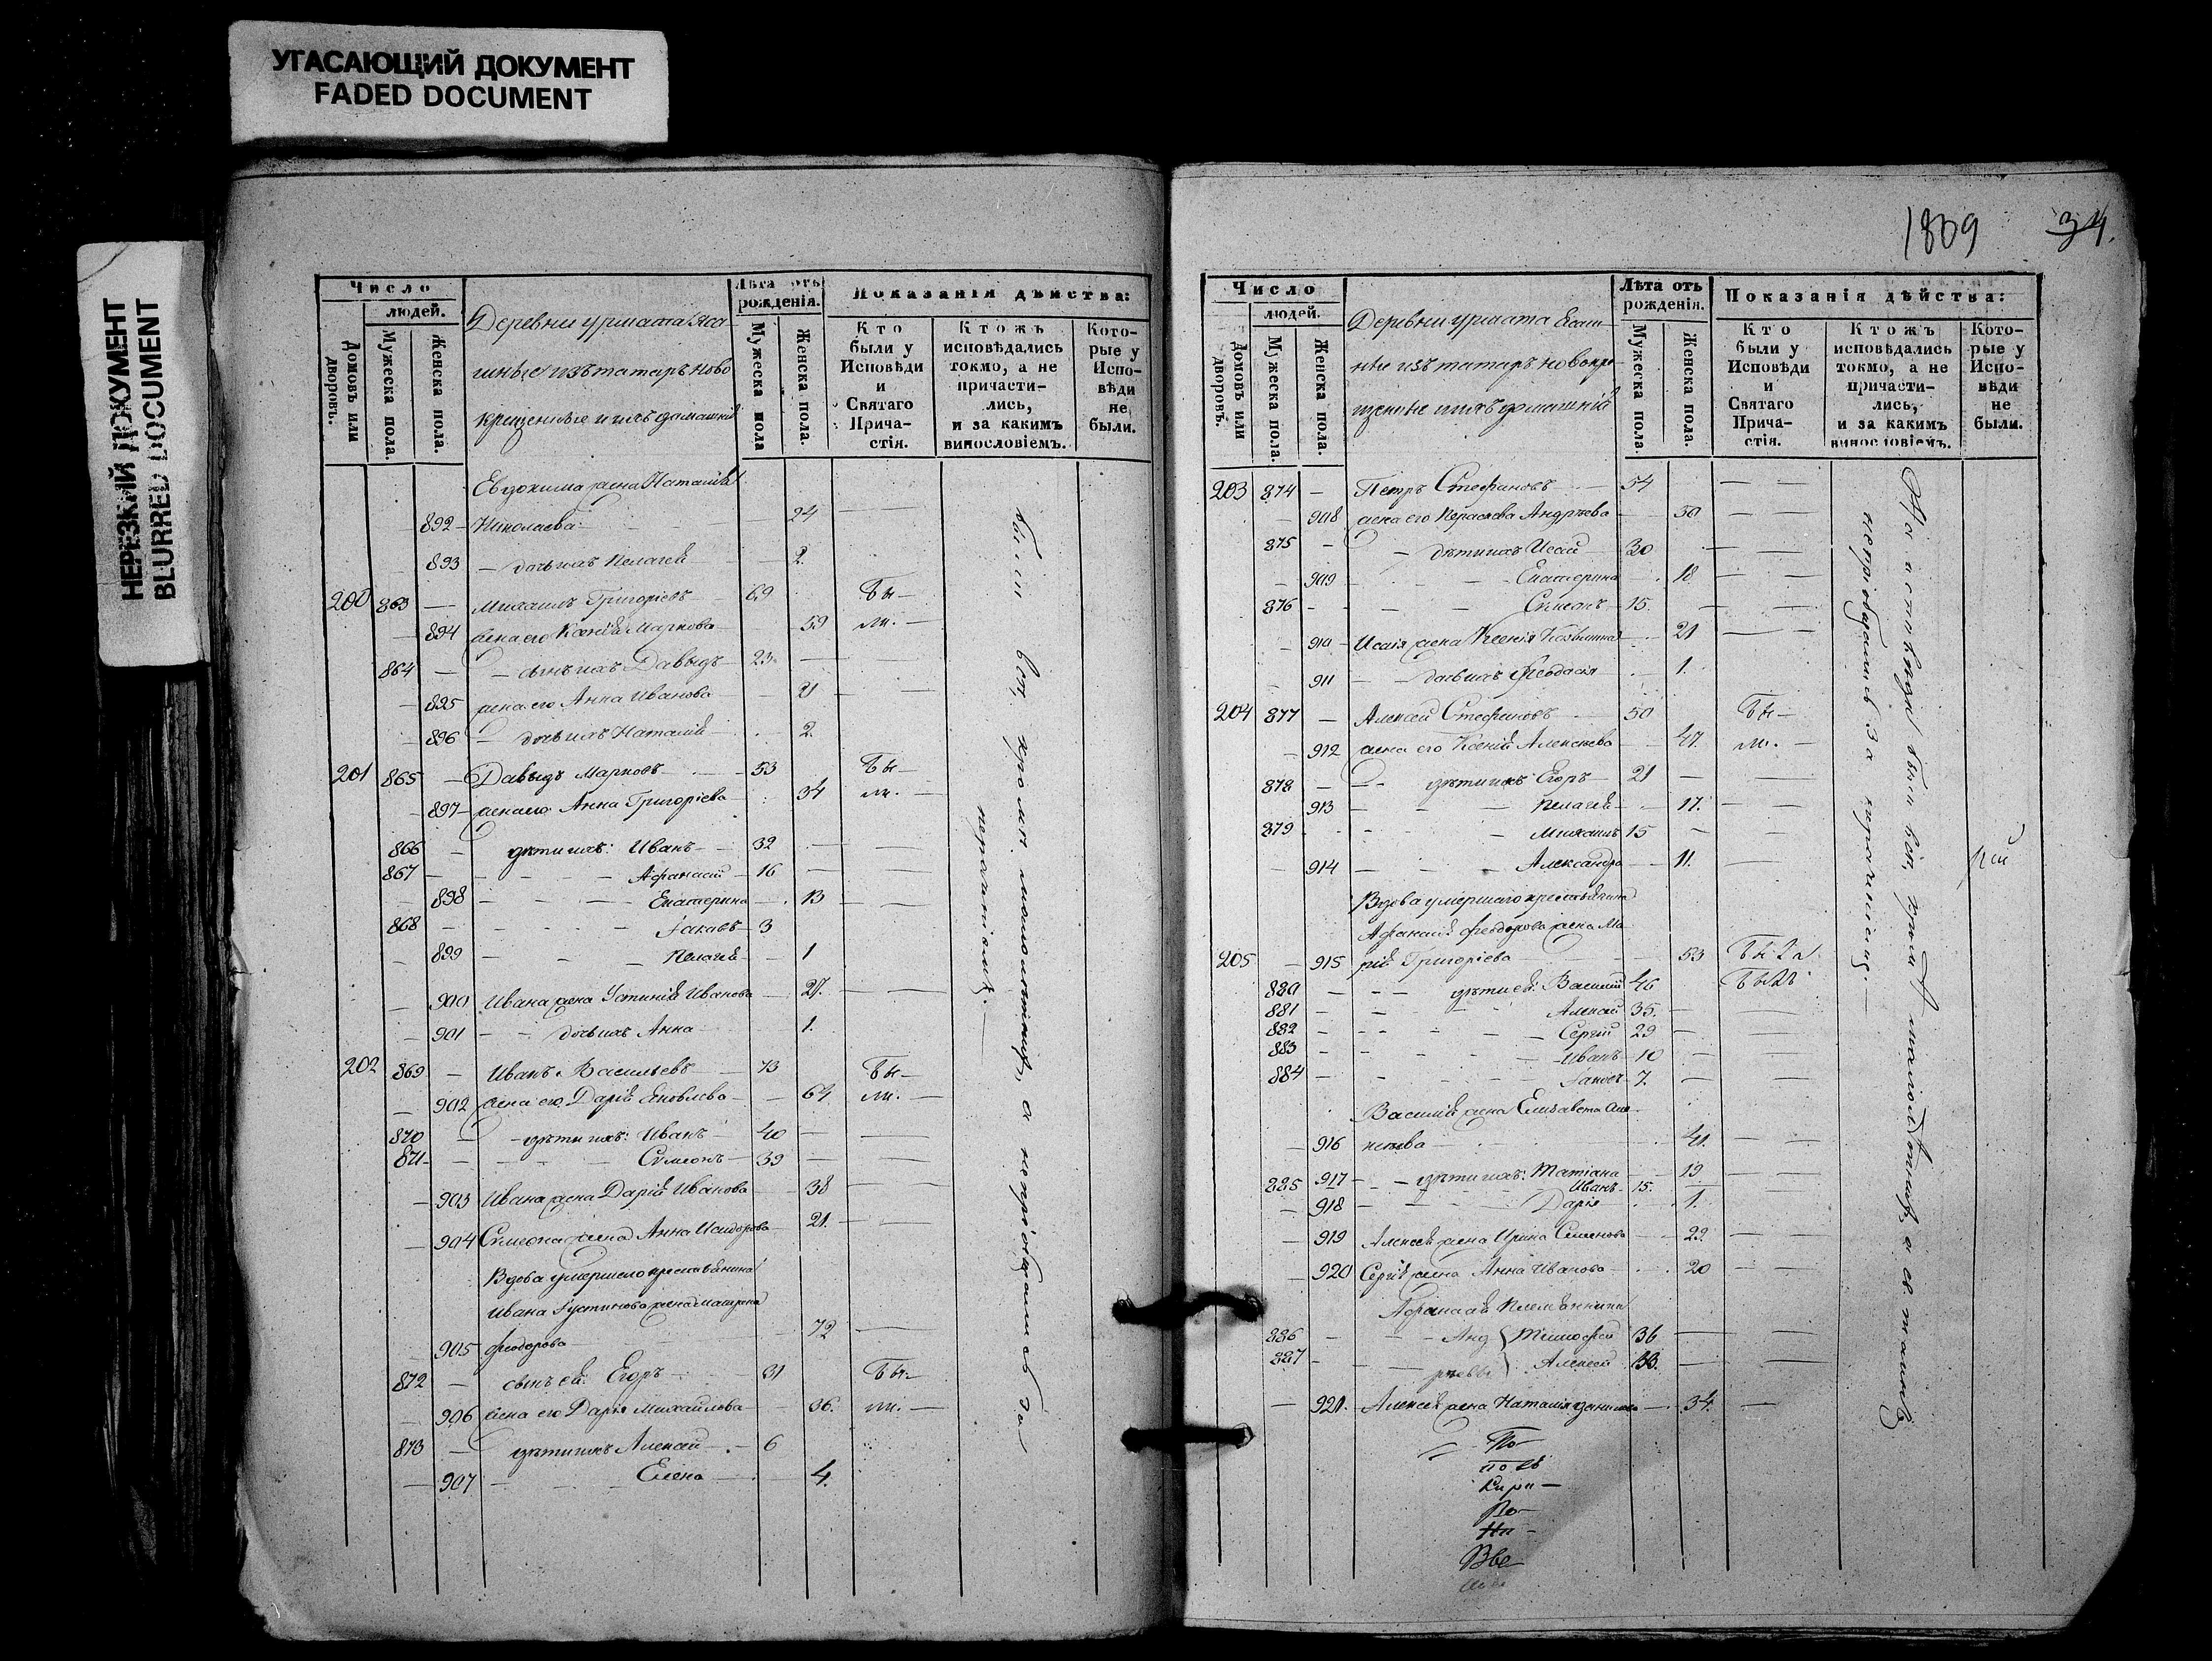 УГАСАЮЩИЙ ДОКУМЕНТ
FADED DOCUMENT
НЕРЕЗКИЙ ДОКУМЕНТ
BLURRED DOCUMENT
Число
людей.
Домовъ или дворовъ.
Мужеска пола.
Женска пола.
Деревни урмата Яса-
шные изъ татаръ ново
крещенные и ихъ домашнія
Лѣта отъ рожденія.
Мужеска пола
Женска пола.
Показанія дѣйства:
Кто были у Исповѣди и Святаго Прича-стія.
Ктожъ исповѣдались токмо, а не причасти-лись, и за какимъ винословіемъ.
Кото-рые у Испо-вѣди не были.
Евдокима жена Наталія
892 Николаева 24
893 дочь ихъ Пелагея 2.
200 863 Михаилъ Григоріевъ 69 Бы-
894 жена его Ксенія Маркова 59 ли.
864 сынъ ихъ Давыдъ 23
895 жена его Анна Иванова 21
896 дочь ихъ Наталія 2.
201 865 Давыдъ Марковъ 53 Бы-
897 жена его Анна Григоріева 34 ли.
866 дѣти ихъ: Иванъ 32
867 Афанасій 16
898 Екатерина 13
868 Іаковъ 3
899 Пелагея 1
900 Ивана жена Устинія Иванова 27.
901 дочь ихъ Анна 1.
202 869 Иванъ Васильевъ 73 Бы-
902 жена его Дарія Яковлева 64 ли.
870 дѣти ихъ: Иванъ 40
871 Сѵмеонъ 39
903 Ивана жена Дарія Иванова 38
904 Сѵмеона жена Анна Исидорова 21.
Вдова умершаго крестьянина
Ивана Іустинова жена Матрона
905 Феодорова 72
872 сынъ ея: Егоръ 31 Бы-
906 жена его Дарія Михайлова 36. ли.
873 дѣти ихъ Алексей 6
907 Елена 4.
были всѣ, кромѣ малолѣтнихъ, а не пріобщались за
нераченіемъ.
1839 34.
Число
людей.
Домовъ или дворовъ.
Мужеска пола.
Женска пола.
Деревни урмата Ясаш-
ные изъ татаръ новокре-
щеные и ихъ домашнія
Лѣта отъ рожденія.
Мужеска пола
Женска пола.
Показанія дѣйства:
Кто были у Исповѣди и Святаго Прича-стія.
Ктожъ исповѣдались токмо, а не причасти-лись, и за какимъ винословіемъ.
Кото-рые у Испо-вѣди не были.
203 874 Петръ Стефановъ 54
908 жена его Параскева Андреева 50
875 дѣти ихъ Исай 30
909 Екатерина 18
876 Сѵмеонъ 15.
910 Исаія жена Ксенія 21
911 дочь ихъ Феодосія 1.
204 877 Алексей Стефановъ 50 Бы-
912 жена его Ксенія Алексеева 47. ли.
878 дѣти ихъ Егоръ 21
913 Пелагея 17.
879 Михаилъ 15
914 Александра 11.
Вдова умершаго крестьянина
Афанасія Феодорова жена Ма-
205 915 рія Григоріева 53 Была
880 дѣти ея: Василій 46 Былъ
881 Алексей 35.
882 Сергій 29
883 Иванъ 10
884 Іаковъ 7.
Василія жена Елисавета Але-
916 ксеева 41.
917 дѣти ихъ: Татіана 19
885 Иванъ 15.
918 Дарія 1.
919 Алексея жена Ирина Семенова 29.
920 Сергія жена Анна Иванова 20
Афанасія племянники
886 Анд Тимофей 36
887 реевы Алексей 33.
921. Алексея жена Наталія 34.
На исповѣди были всѣ, кромѣ малолѣтнихъ, а св. таинъ
не пріобщались за нераченіемъ.
рей
По-
повъ
Кири-
Ве